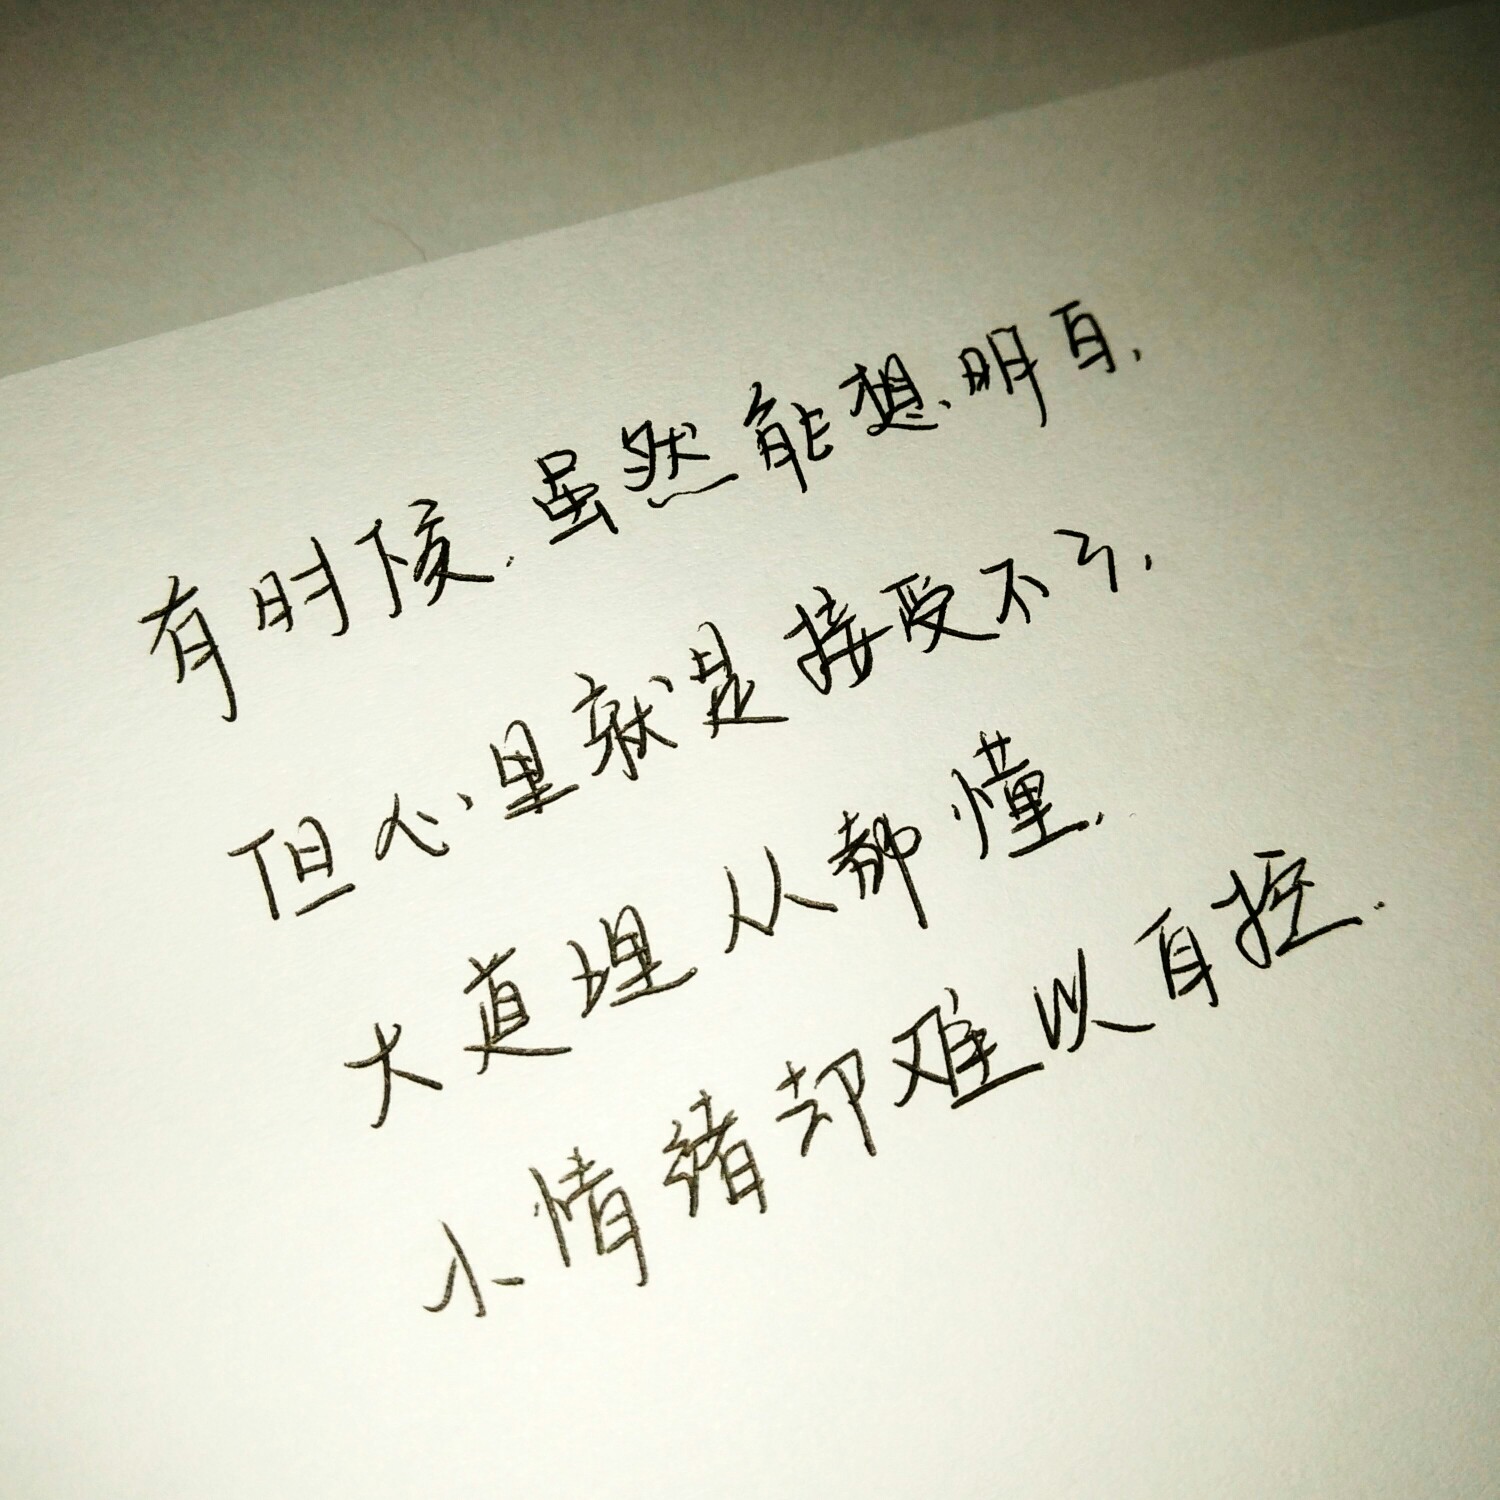 有时候.虽然能想明白.
但心里就是接受不了.
大道理从都懂.
小情绪却难以自控.